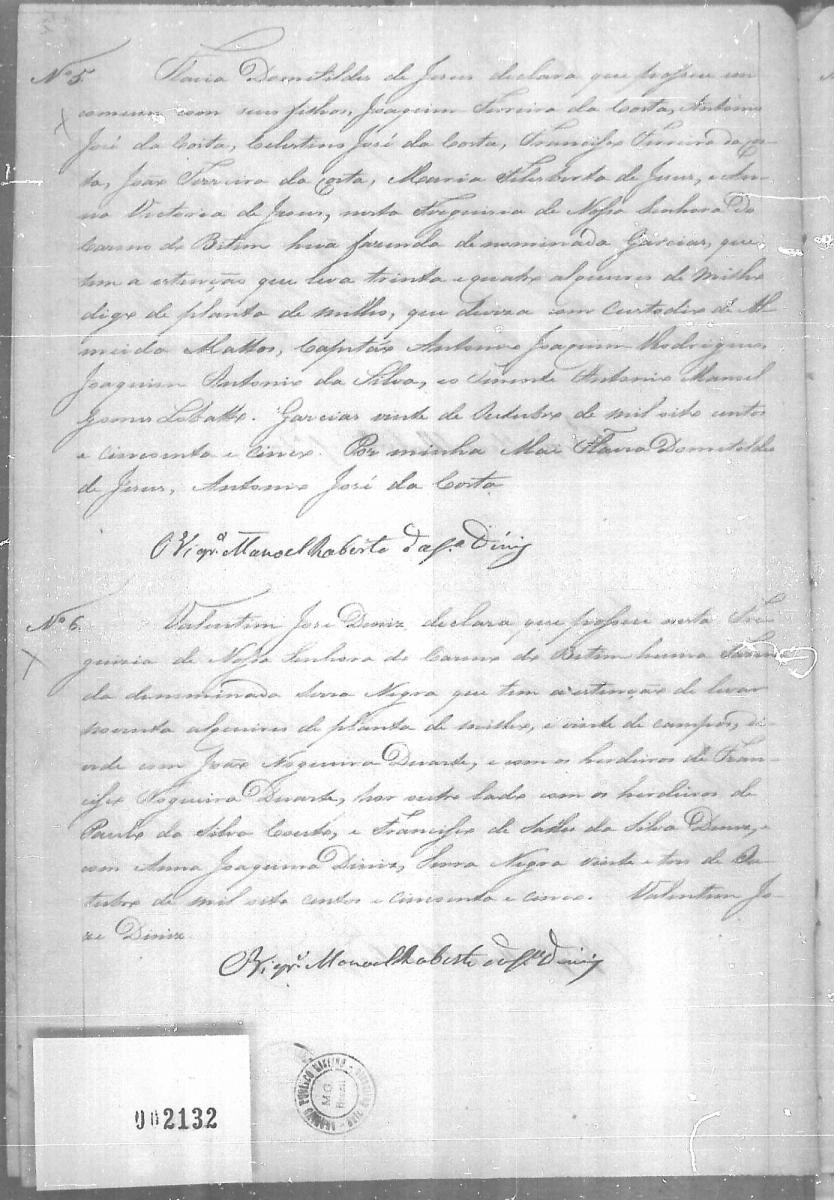 Nº 5. Flavia Dometildes de Jesus declara que possue em
commum com seus filhos, Joaquim Ferreira da Costa, Antonio
José da Costa, Celestino José da Costa, Francisco Ferreira da Cos-
ta, João Ferreira da Costa, Maria Felisberta de Jesus, e An-
na Victoria de Jesus, nesta Freguisia de Nossa Senhora do
Carmo do Betim huã fazenda denominada Garcias, que
tem a extenção que leva trinta e quatro alqueires de milho
digo de planta de milho, que deviza com Custodio de Al-
meida Mattos, Capitão Antonio Joaquim Rodrigues,
Joaquim Antonio da Silva, e o Tinente Antonio Manoel
Gomes Lobatto. Garcias vinte de Outubro de mil oito centos
e cincoenta e cinco. Por minha Mãe Flavia Dometildes
de Jesus, Antonio José da Costa
O Vigrº Manoel Roberto da Sª Diniz
Nº 6. Valentim José Diniz declara que possue nesta Fre-
guizia de Nossa Senhora do Carmo do Betim huma Fasen-
da denominada Serra Negra que tem a extenção de levar
noventa alqueires de planta de milho, e vinte de campos, di-
vide com João Nogueira Duarte, e com os herdeiros de Fran-
cisco Nogueira Duarte, por outro lado com os herdeiros de
Paulo da Silva Couto, e Francisco de Salles da Silva Diniz, e
com Anna Joaquina Diniz, Serra Negra vinte e tres de Ou-
tubro de mil oito centos e cincoenta e cinco. Valentim Jo-
ze Diniz
O Vigrº Manoel Roberto da Sª Diniz
ARQUIVO PUBLICO MINEIRO
M.G.
Brasil
002132